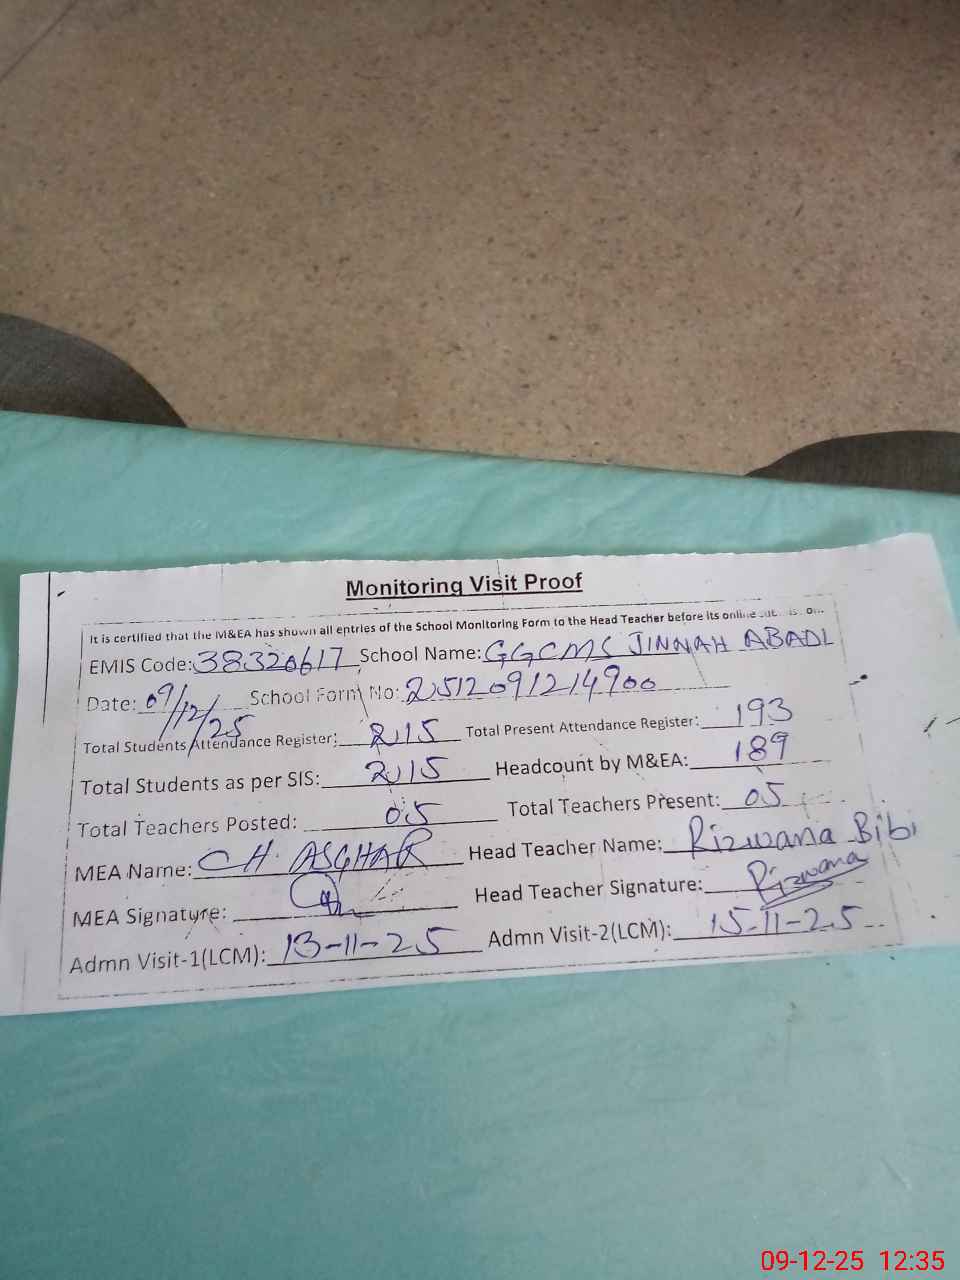 Monitoring Visit Proof
It is certified that the M&EA has shown all entries of the School Monitoring Form to the Head Teacher before its online
EMIS Code: 38320617 School Name: GGCMS JINNAH ABADI
Date: 09/12/25 School Form No: 2512091214900
Total Students Attendance Register: 215 Total Present Attendance Register: 193
Total Students as per SIS: 215 Headcount by M&EA: 189
Total Teachers Posted: 05 Total Teachers Present: 05
MEA Name: CH. ASGHAR Head Teacher Name: Rizwana Bibi
MEA Signature: Head Teacher Signature: Rizwana
Admn Visit-1(LCM): 13-11-25 Admn Visit-2(LCM): 15-11-25
09-12-25 12:35